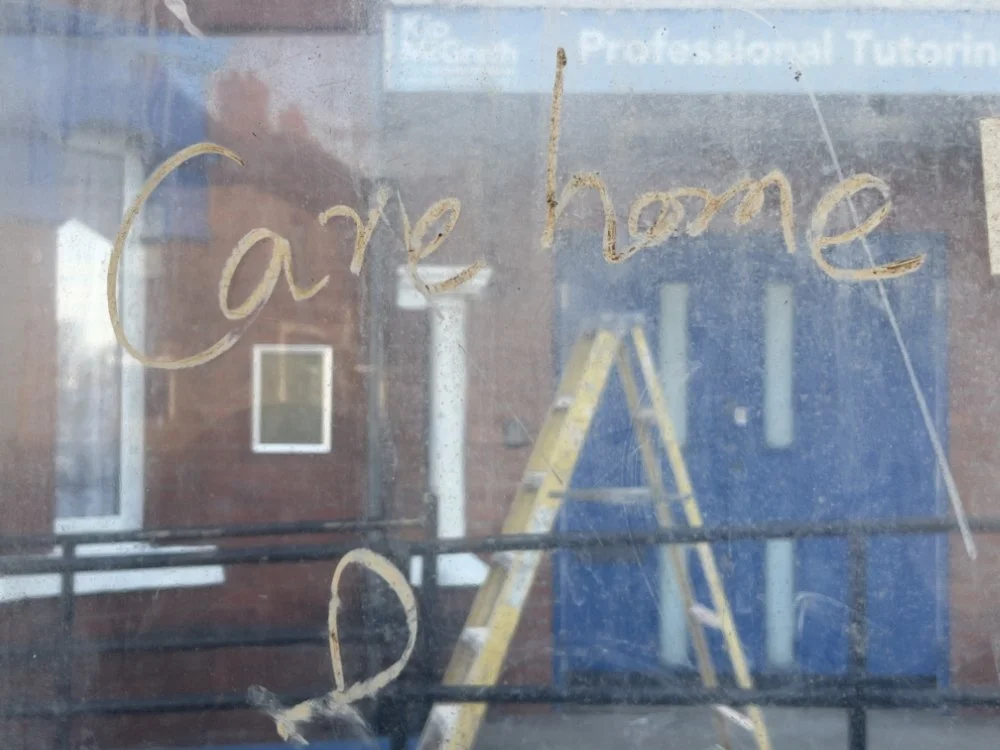 Kip McGrath
Professional Tutorin
Care home